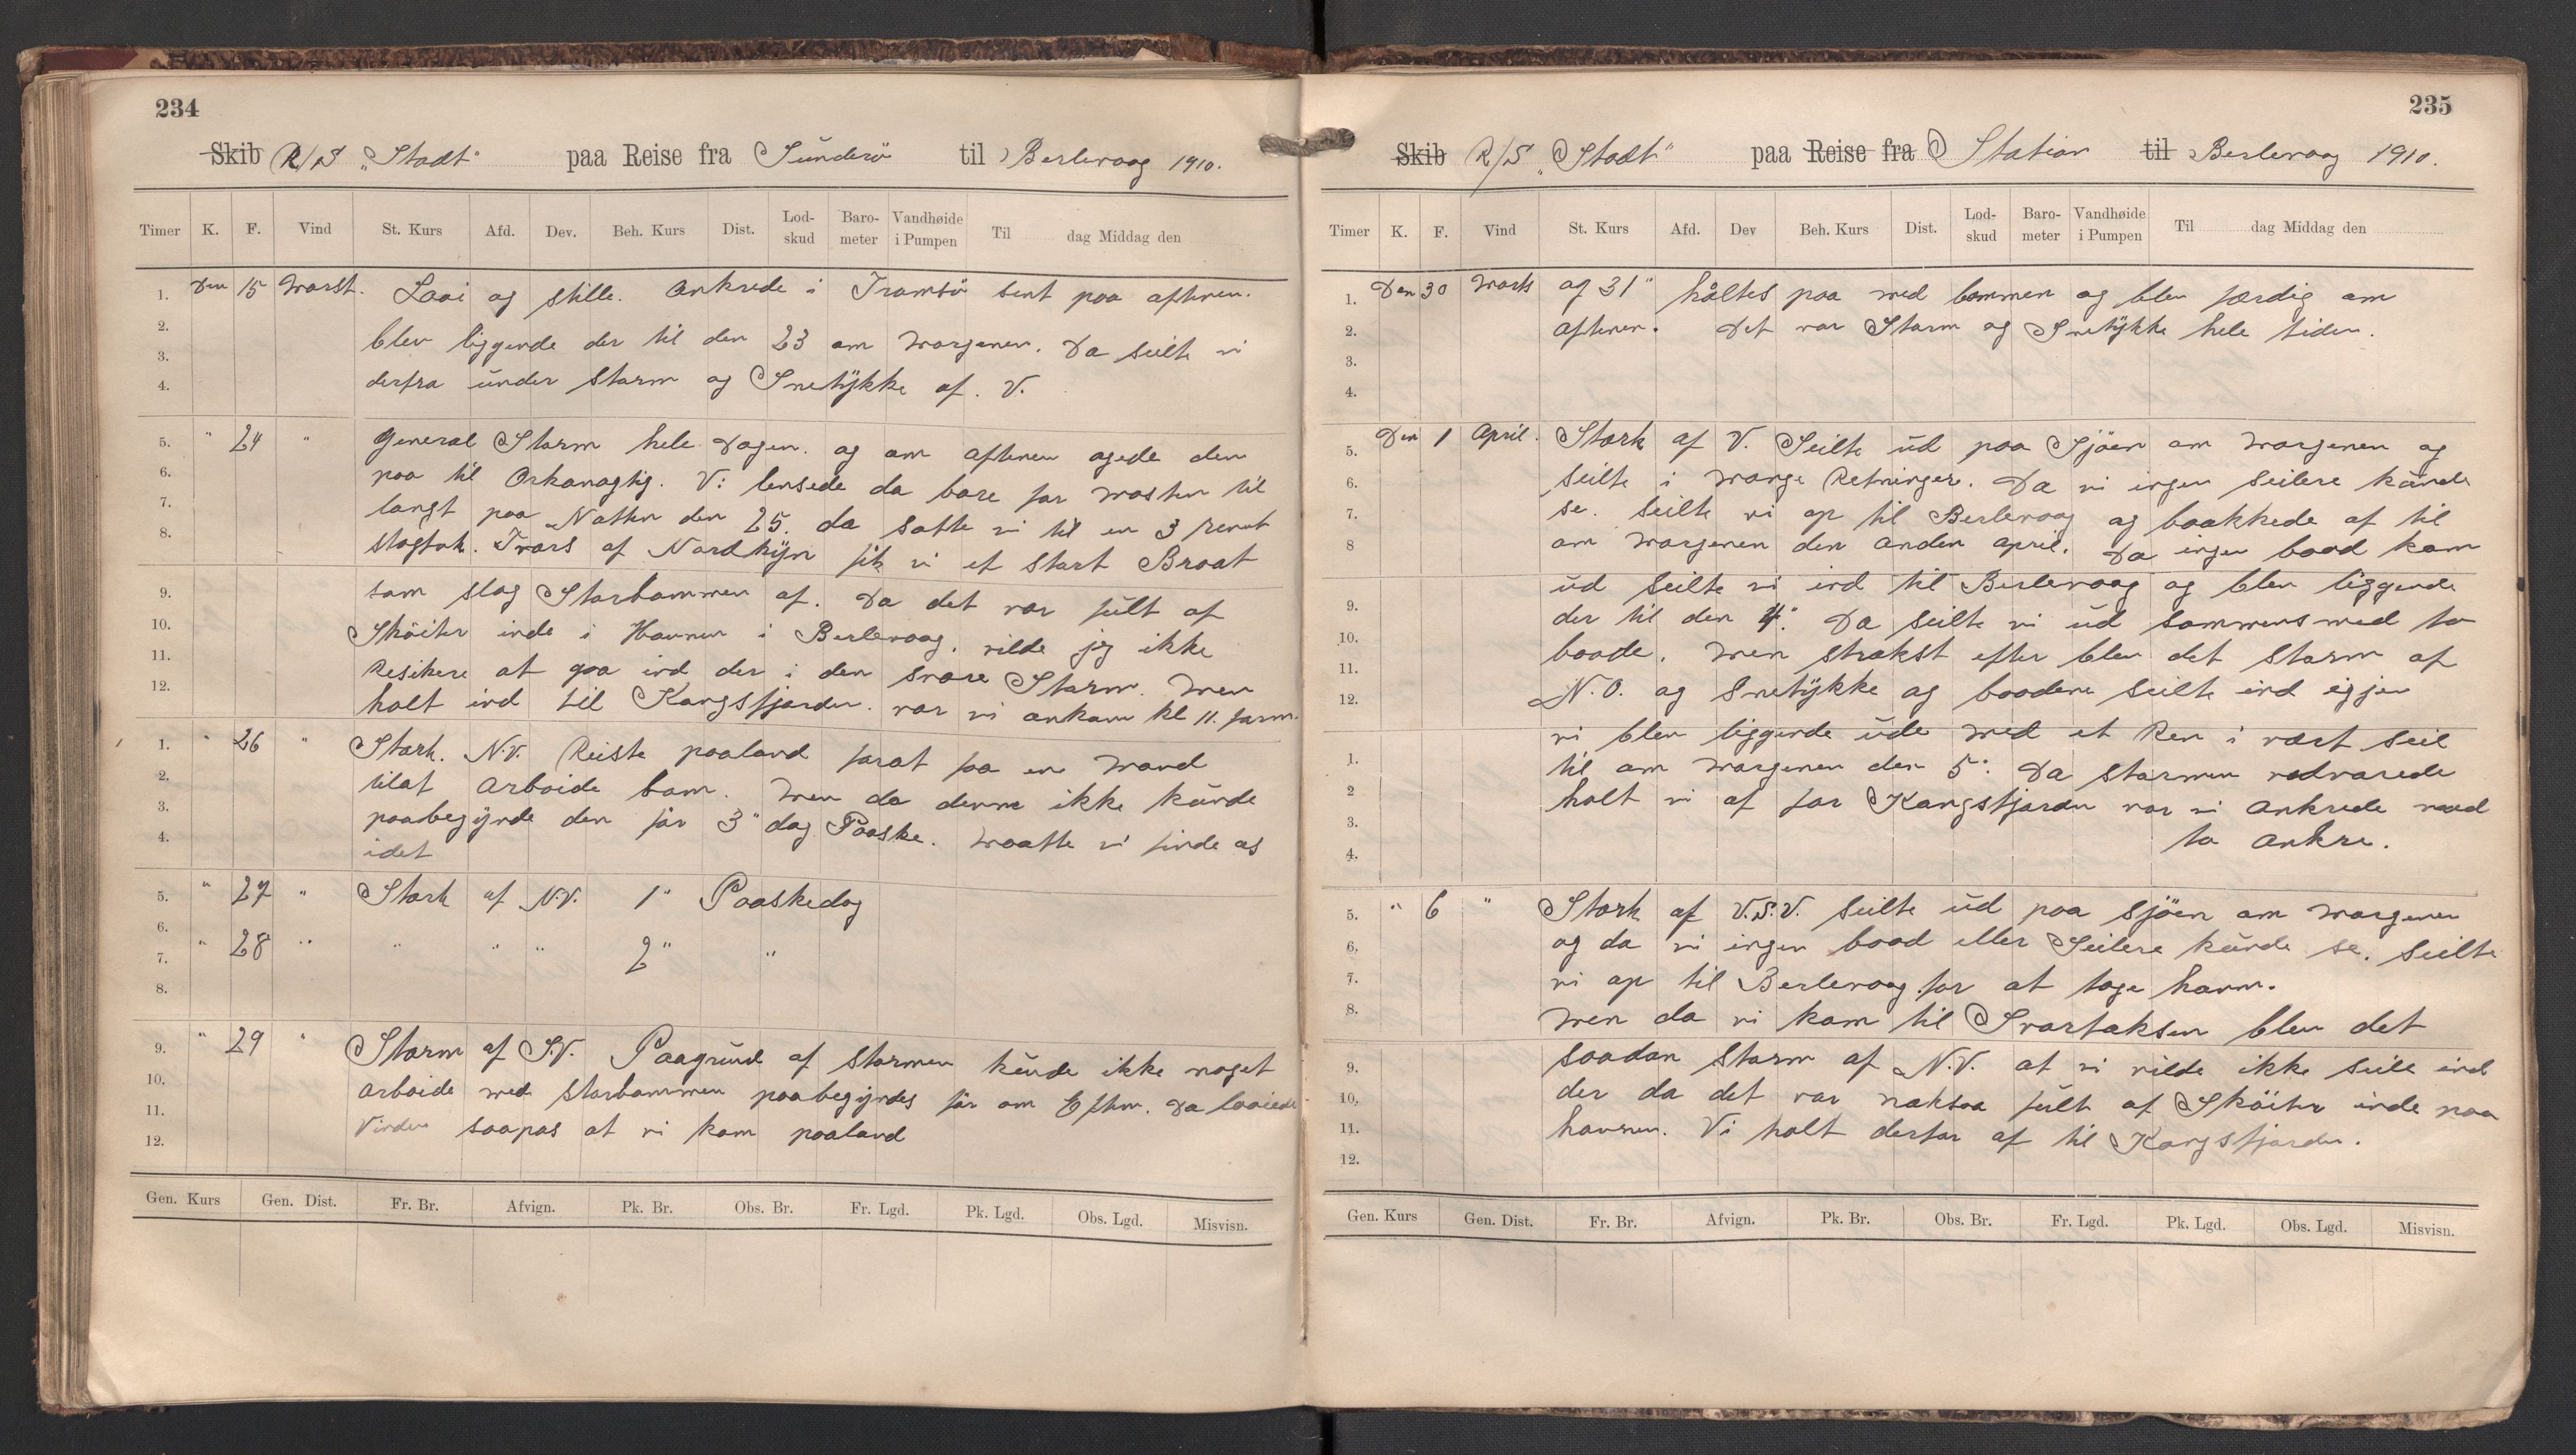 234
Skib R/S „Stadt" paa Reise fra Sunderö til Berlevaag 1910.
Timer K. F. Vind St. Kurs Afd. Dev. Beh. Kurs Dist. Lod-skud Baro-meter Vandhøide i Pumpen Til dag Middag den
1. Den 15 Marst. Laai og stille. Ankrede i Tromsö sent paa aftnen.
2. blev liggende der til den 23 om Morgenen. Da seilte vi
3.
4. derfra under Storm og Snetykke af. V.
5. " 24 " General Storm hele Dagen. og om aftenen ögede den
6. paa til Orkanagtig. Vi lensede da bare for Masten til
7. langt paa Natten den 25. da satte vi til en 3 revet
8. stagfok. Tvars af Nordkyn fik vi et stort Braat
9. som slog Storbommen af. Da det var fult af
10. Sköiter inde i Havnen i Berlevaag. vilde jeg ikke
11. Resikere at gaa ind der i den svare Storm. Men
12. holt ind til Kongsfjorden. var vi ankom kl 11. form.
1. " 26 " Stærk. N.V. Reiste paaland forat faa en Mand
2. tilat Arbeide bom. Men da denne ikke kunde
3. paabegynde den för 3" dag Paaske. Maatte vi finde os
4. idet
5. " 27 " Stærk af N.V. 1" Paaskedag
6.
7. " 28 " " " " 2" "
8.
9. " 29 " Storm af S.V. Paagrund af stormen kunde ikke noget
10. arbeide med storbommen paabegyndes för om Eftm. Da laaiede
11. Vinden saapas at vi kom paaland
12.
Gen. Kurs Gen. Dist. Fr. Br. Afvign. Pk. Br. Obs. Br. Fr. Lgd. Pk. Lgd. Obs. Lgd. Misvisn.
235
Skib R/S „Stadt" paa Reise fra Station til Berlevaag 1910.
Timer K. F. Vind St. Kurs Afd. Dev Beh. Kurs Dist. Lod-skud Baro-meter Vandhøide i Pumpen Til dag Middag den
1. Den 30 Marts og 31" holtes paa med bommen og blev færdig om
2. aftenen. Det var Storm og Snetykke hele tiden.
3.
4.
5. Den 1 April. Stærk af V. Seilte ud paa Sjöen om Morgenen og
6. seilte i Mange Retninger. Da vi ingen seilere kunde
7. se. seilte vi op til Berlevaag og baakkede af til
8 om Morgenen den anden april. Da ingen baad kom
ud seilte vi ind til Berlevaag og blev liggende
9. der til den 4". Da seilte vi ud sammens med to
10. baade. Men strakst efter blev det storm af
11.
12. N.O. og Snetykke og baadene seilte ind igjen
vi blev liggende ude med et Rev i vært seil
1. til om Morgenen den 5". Da stormen vedvarede
2 holt vi af for Kongsfjorden var vi Ankrede med
3. to Ankre.
4.
5. " 6 " Stærk af V.S.V. seilte ud paa sjöen om Morgenen
6. og da vi ingen baad eller Seilere kunde se. seilte
7. vi op til Berlevaag for at tage havn.
8. Men da vi kom til Svartaksen blev det
9. saadan storm af N.V. at vi vilde ikke seile ind
10. der da det var naksaa fult af Sköiter inde paa
11. havnen. Vi holt derfor af til Kongsfjorden.
12.
Gen. Kurs Gen. Dist. Fr. Br. Afvign. Pk. Br. Obs. Br. Fr. Lgd. Pk. Lgd. Obs. Lgd. Misvisn.